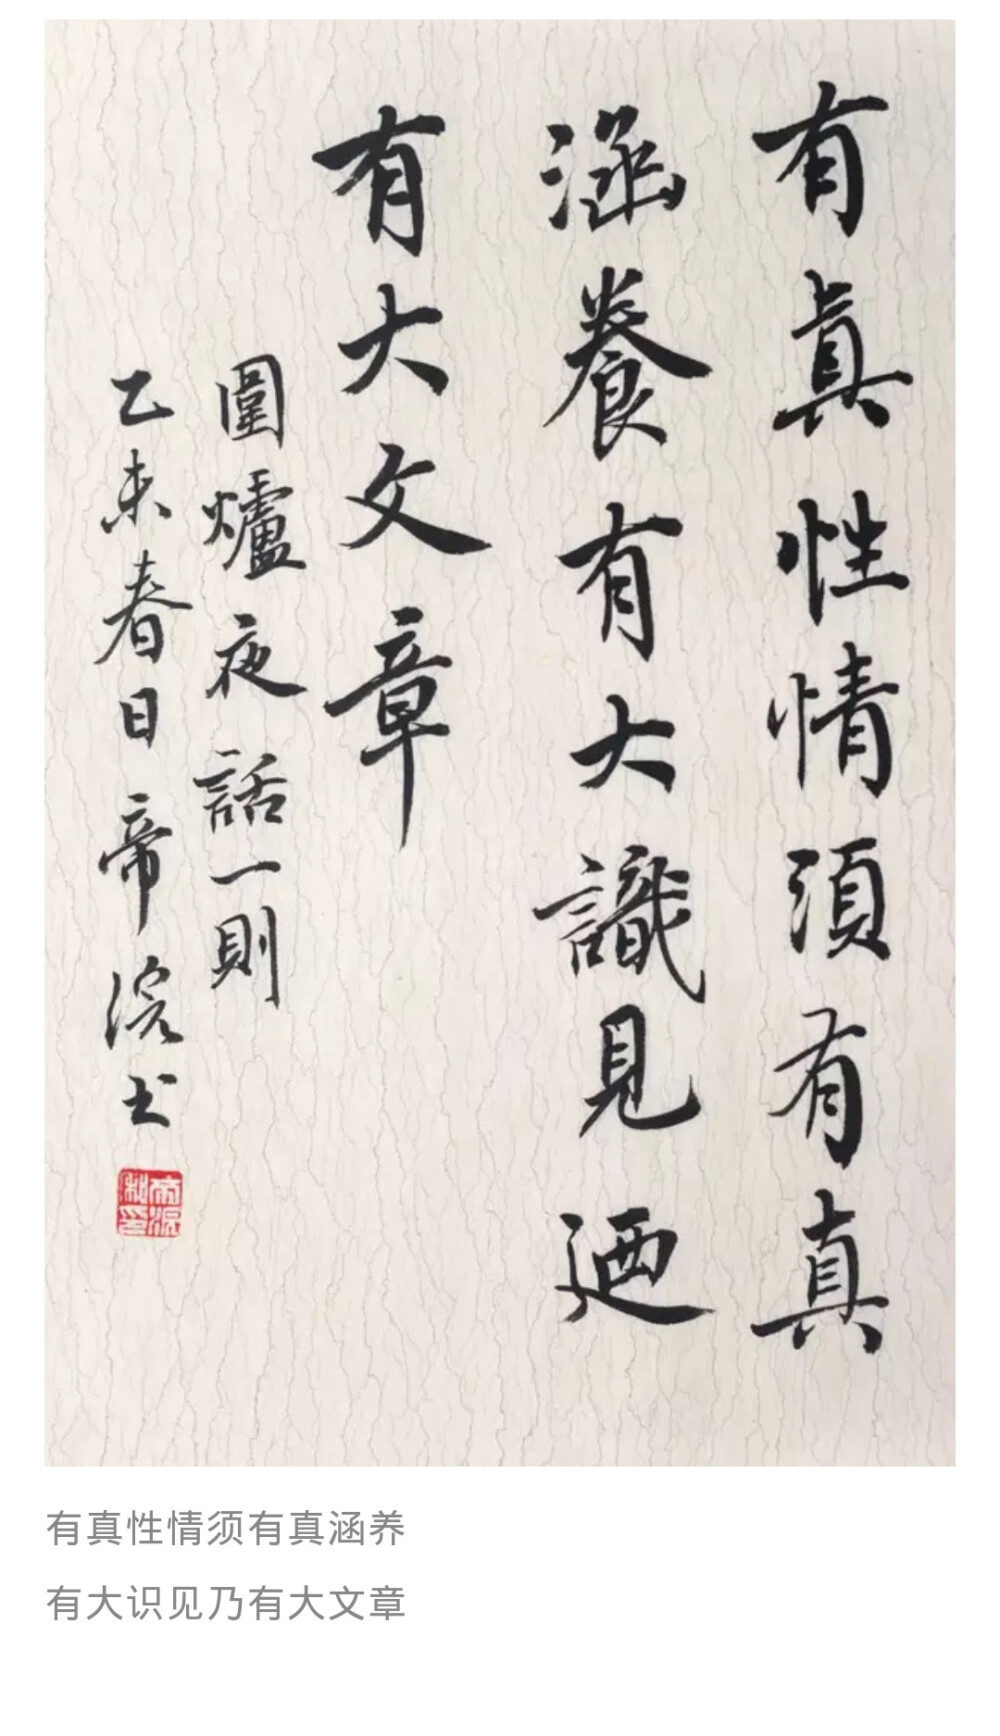 有真性情須有真
涵養有大識見迺
有大文章
圍爐夜話一則
乙未春日帝浣书
有真性情须有真涵养
有大识见乃有大文章